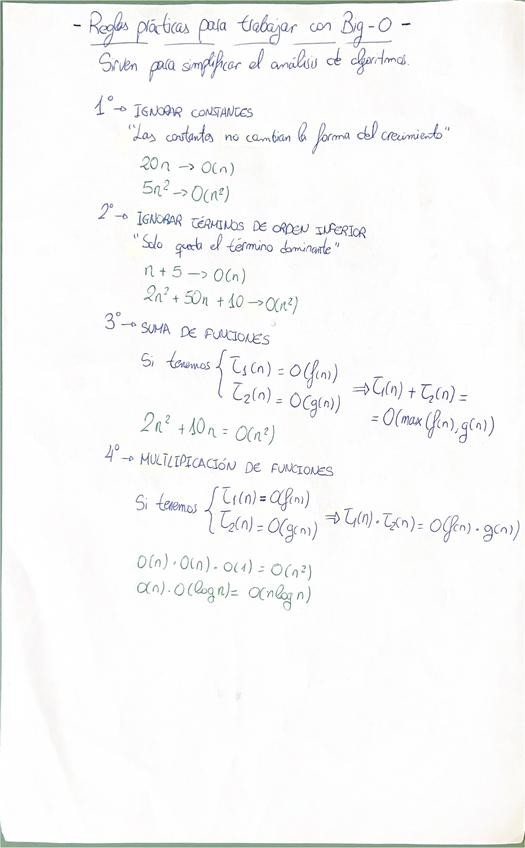 - Reglas prácticas para trabajar con Big-O -
Sirven para simplificar el análisis de algoritmos.
1º → IGNORAR CONSTANTES
"Las constantes no cambian la forma del crecimiento"
20n → O(n)
5n² → O(n²)
2º → IGNORAR TÉRMINOS DE ORDEN INFERIOR
"Solo queda el término dominante"
n + 5 → O(n)
2n² + 50n + 10 → O(n²)
3º → SUMA DE FUNCIONES
Si tenemos { T₁(n) = O(f(n))
T₂(n) = O(g(n)) ⇒ T₁(n) + T₂(n) =
= O(max(f(n), g(n))
2n² + 10n = O(n²)
4º → MULTILIPICACIÓN DE FUNCIONES
Si tenemos { T₁(n) = O(f(n)
T₂(n) = O(g(n)) ⇒ T₁(n) · T₂(n) = O(f(n) · g(n))
O(n) · O(n) · O(1) = O(n²)
O(n) · O(log n) = O(n log n)